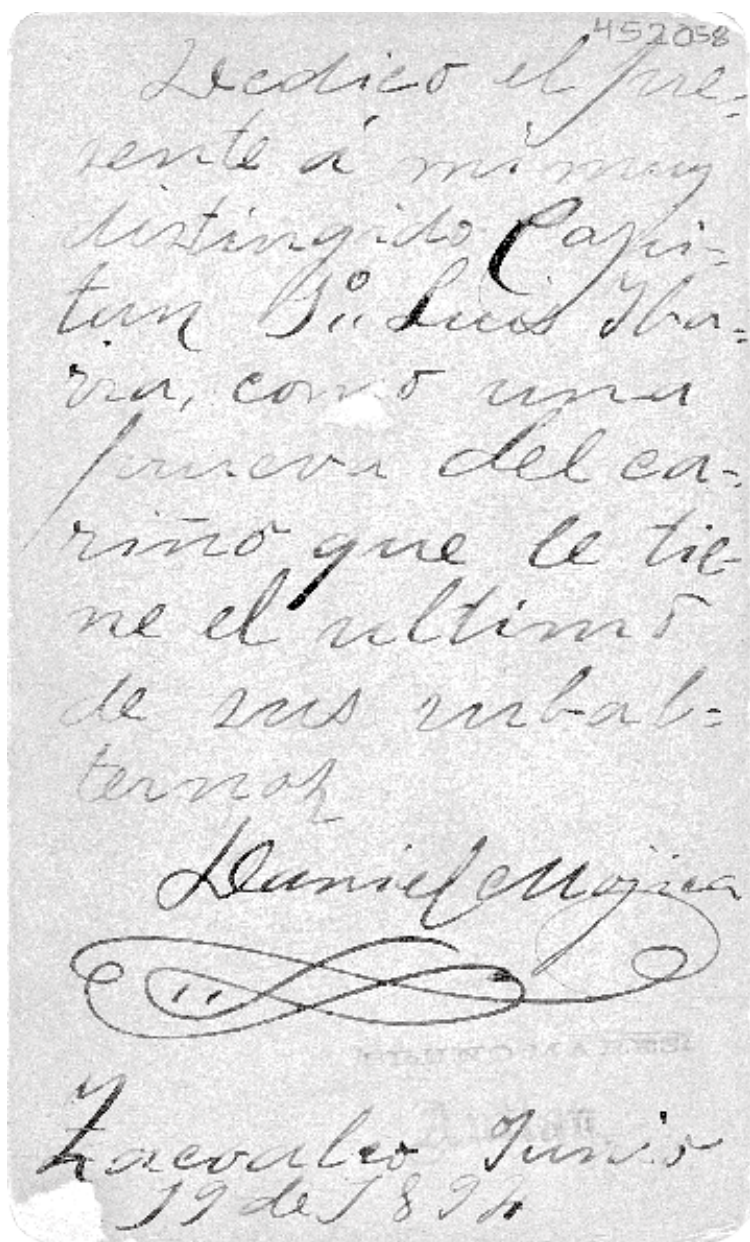 452058
Dedico el pre=
sente á mi muy
distingido Capi=
tan 1o.. Luis Yba=
rra, como una
prueva del ca=
riño que le tie-
ne el ultimo
de sus subal=
ternos
Daniel Mojica
Zacoalco Junio
19 de 189